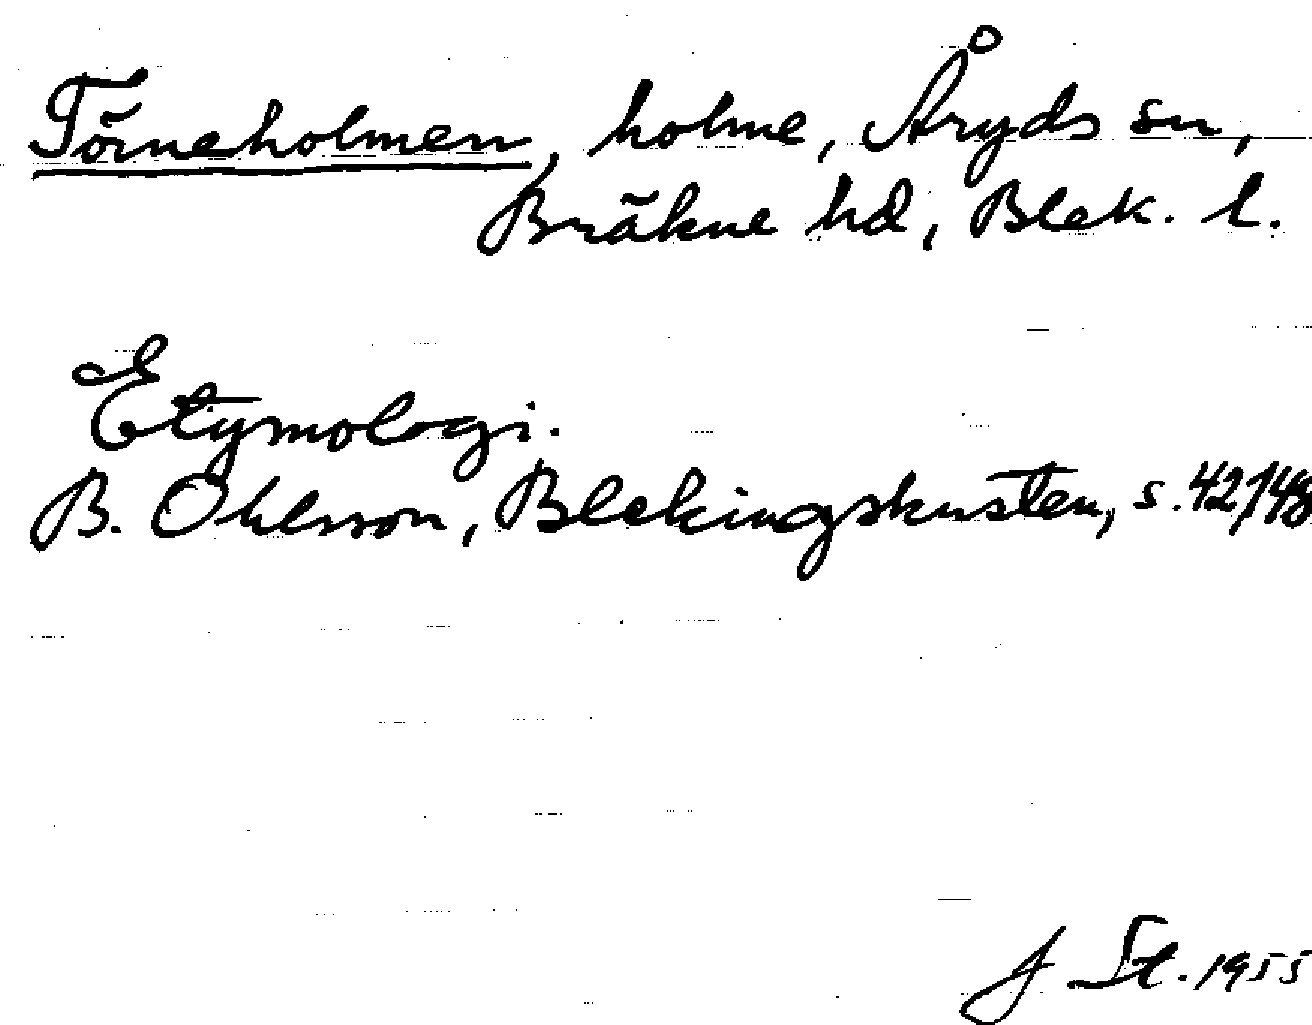 Törneholmen, holme, Åryds sn,
Bräkne hd, Blek. l.
Etymologi.
B. Ohlsson, Blekingskusten, s. 42/48
J St. 1955